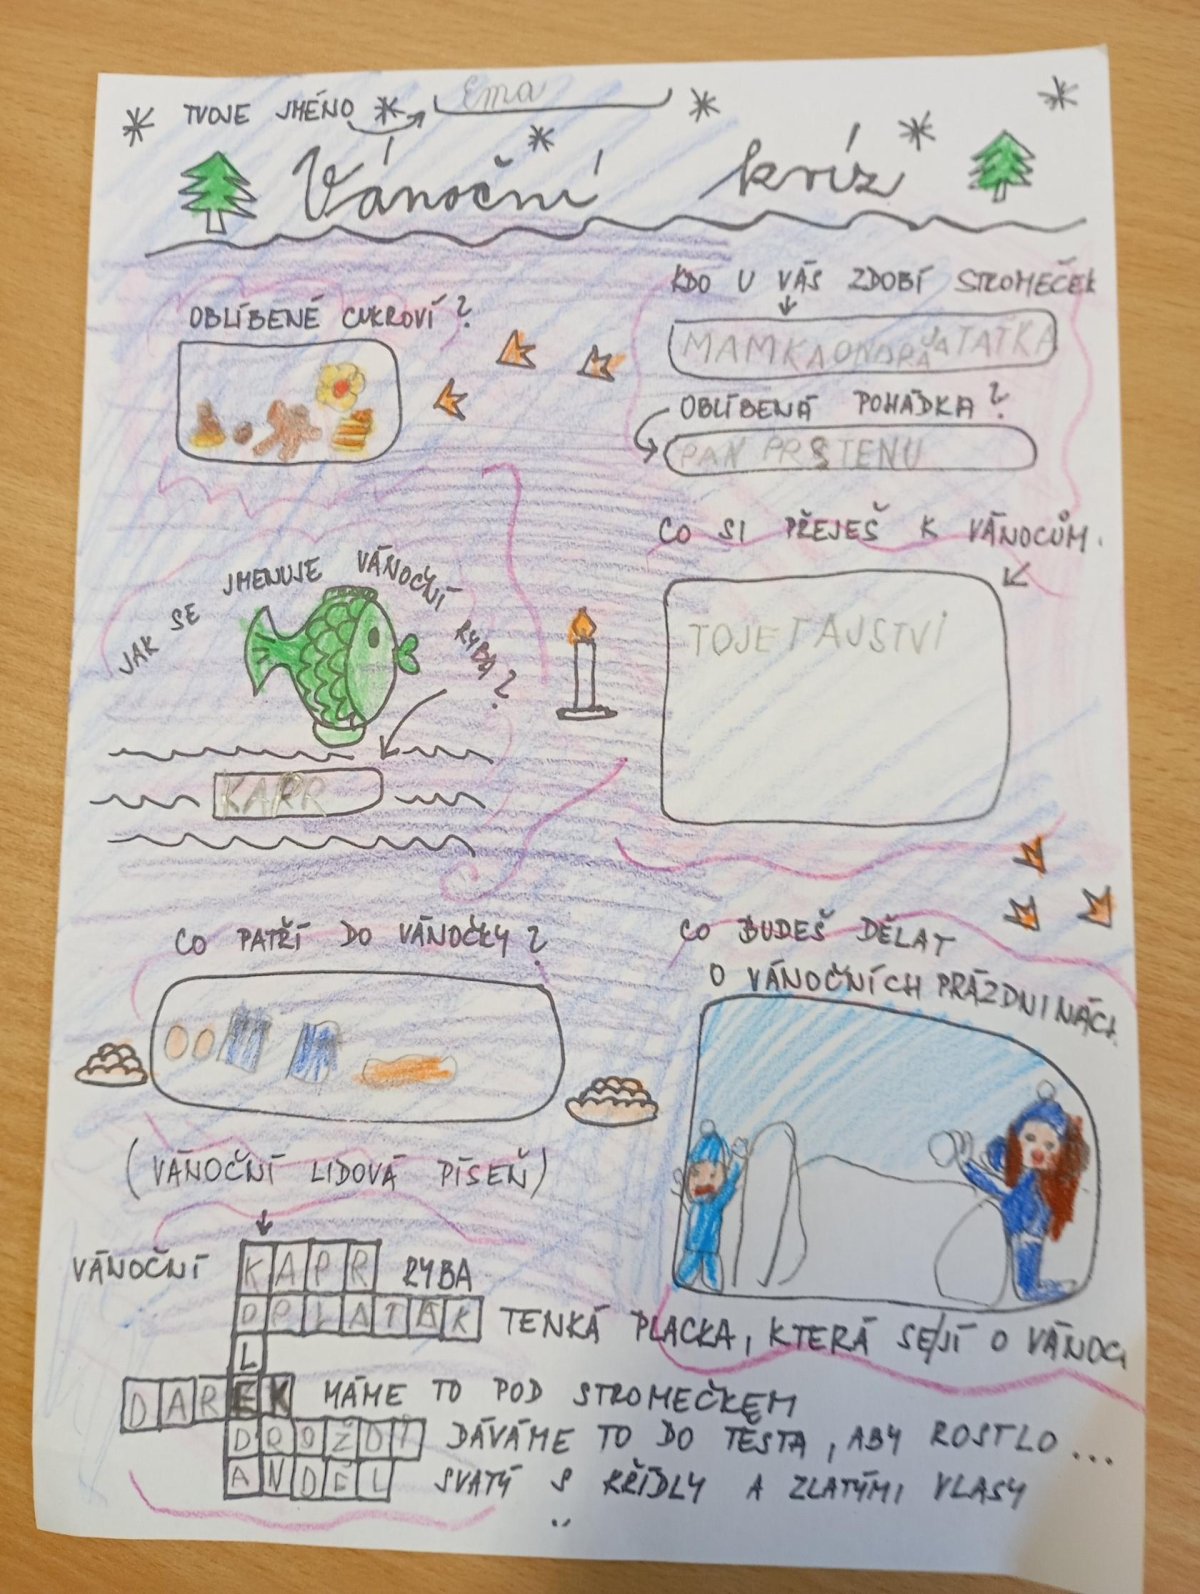 TVOJE JMÉNO Ema
Vánoční kvíz
OBLÍBENÉ CUKROVÍ?
KDO U VÁS ZDOBÍ STROMEČEK
MAMKA ONDRA JA TAŤKA
OBLÍBENÁ POHÁDKA?
PAN PRSTENU
JAK SE JMENUJE VÁNOČNÍ RYBA?
KAPR
CO SI PŘEJEŠ K VÁNOCŮM.
TOJE TAJSTVÍ
CO PATŘÍ DO VÁNOČKY?
CO BUDEŠ DĚLAT
O VÁNOČNÍCH PRÁZDNINÁCH
(VÁNOČNÍ LIDOVÁ PÍSEŇ)
VÁNOČNÍ KAPR RYBA
OPLATAK TENKÁ PLACKA, KTERÁ SE JÍ O VÁNOC
L
DAREK MÁME TO POD STROMEČKEM
DROŽDÍ DÁVÁME TO DO TĚSTA, ABY ROSTLO...
ANDĚL SVATÝ S KŘÍDLY A ZLATÝMI VLASY